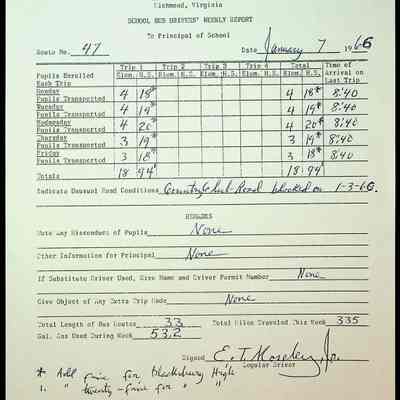 Richmond, Virginia
SCHOOL BUS DRIVERS' WEEKLY REPORT
To Principal of School
Route No. 47 Date January 7 1966
Trip 1 Trip 2 Trip 3 Trip 4 Total Time of
Pupils Enrolled Elem. H.S. Elem. H.S. Elem. H.S. Elem. H.S. Elem. H.S. Arrival on
Each Trip Last Trip
Monday
Pupils Transported 4 18* 4 18* 8:40
Tuesday
Pupils Transported 4 19* 4 19* 8:40
Wednesday
Pupils Transported 4 20* 4 20* 8:40
Thursday
Pupils Transported 3 19* 3 19* 8:40
Friday
Pupils Transported 3 18* 3 18* 8:40
Totals 18 94 18 94
Indicate Unusual Road Conditions Country Club Road blocked on 1-3-66.
REMARKS
Note Any Misconduct of Pupils None
Other Information for Principal None
If Substitute Driver Used, Give Name and Driver Permit Number None
Give Object of Any Extra Trip Made None
Total Length of Bus Routes 33 Total Miles Traveled This Week 335
Gal. Gas Used During Week 53.2
Signed E. T. Mosley, Jr.
Regular Driver
* Add five for Blacksburg High
1. " twenty-five for " "